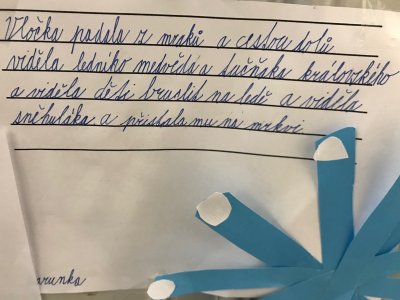 Vločka padala z mraků a cestou dolů
viděla ledního medvěda a tučňáka královského
a viděla děti bruslit na ledě a viděla
sněhuláka a přistála mu na mrkvi.
arunka